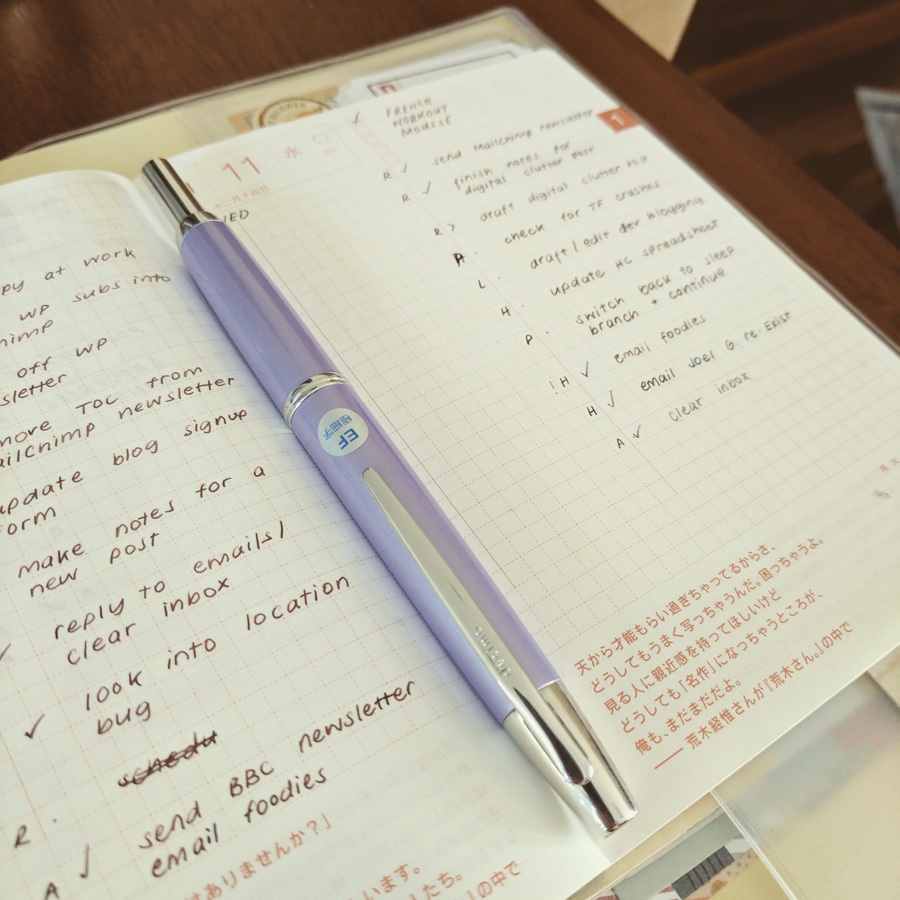 py at work
WP subs into
himp
off WP
sletter
more TOC from
ailchimp newsletter
update blog signup
form
make notes for a
new post
reply to emails/
clear inbox
✓ look into location
bug
schedu
R. send BBC newsletter
A ✓ email foodies
はありませんか?」
います。
たち。
』の中で
11 水
二月十四日
WED
✓ FRENCH
WORKOUT
MOUSSE
1
R ✓ send Mailchimp newsletter
✓ finish notes for
digital clutter post
R > draft digital clutter post
P. check for TF crashes
L. draft / edit dev blogging
H. update HC spreadsheet
P. switch back to sleep
branch + continue
!H ✓ email foodies
H ✓ email Joel G. re: Exist
A ✓ clear inbox
EF
極細字
天から才能もらい過ぎちゃってるからさ、
どうしてもうまく写っちゃうんだ。困っちゃうよ。
見る人に親近感を持ってほしいけど
どうしても「名作」になっちゃうところが、
俺も、まだまだだよ。
── 荒木経惟さんが『荒木さん。』の中で